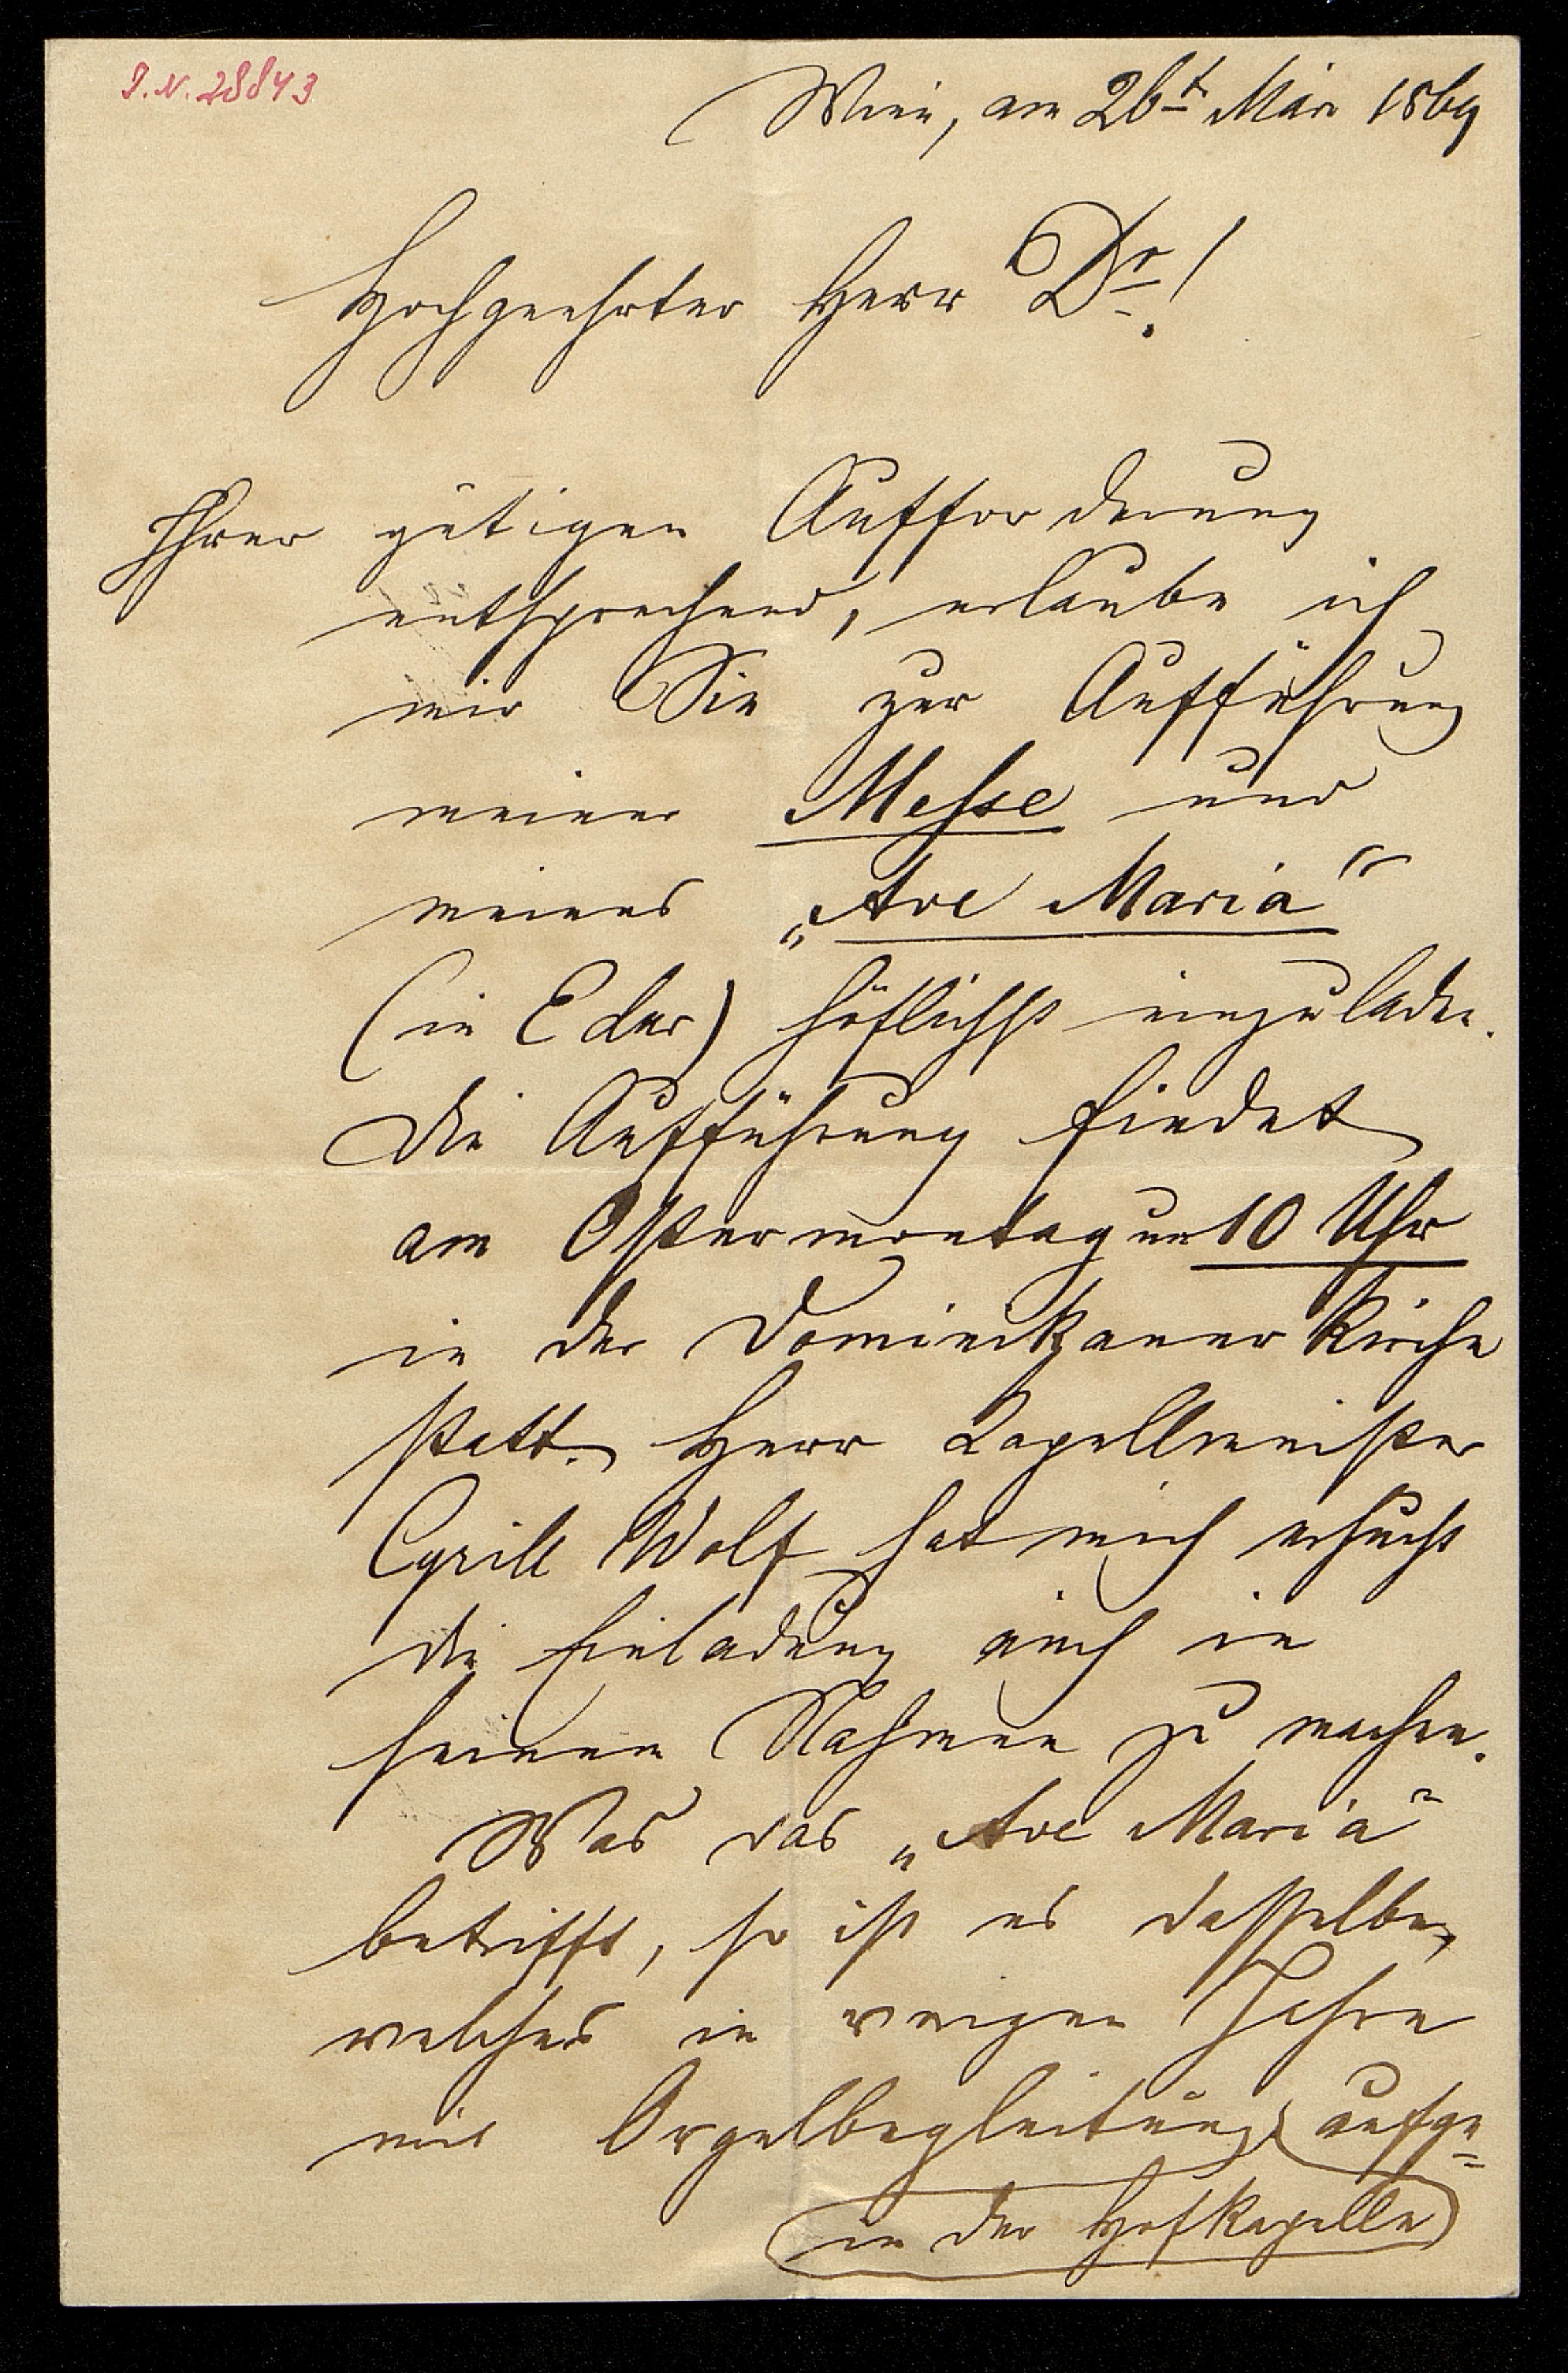 I. N. 28843
Wien, am 26t März 1869
Hochgeehrter Herr Dr!
Ihrer gütigen Aufforderung
entsprechend, erlaube ich
mir Sie zur Aufführung
meiner Messe und
meines „Ave Maria“
(in E dur) höflichst einzuladen.
Die Aufführung findet
am Ostermontag um 10 Uhr
in der Dominikaner Kirche
statt. Herr Kapellmeister
Cyrill Wolf hat mich ersucht
die Einladung auch in
seinem Nahmen zu machen.
Was das „Ave Maria“
betrifft, so ist es dasselbe,
welches in vorigen Jahre
mit Orgelbegleitung aufge=
in der Hofkapelle